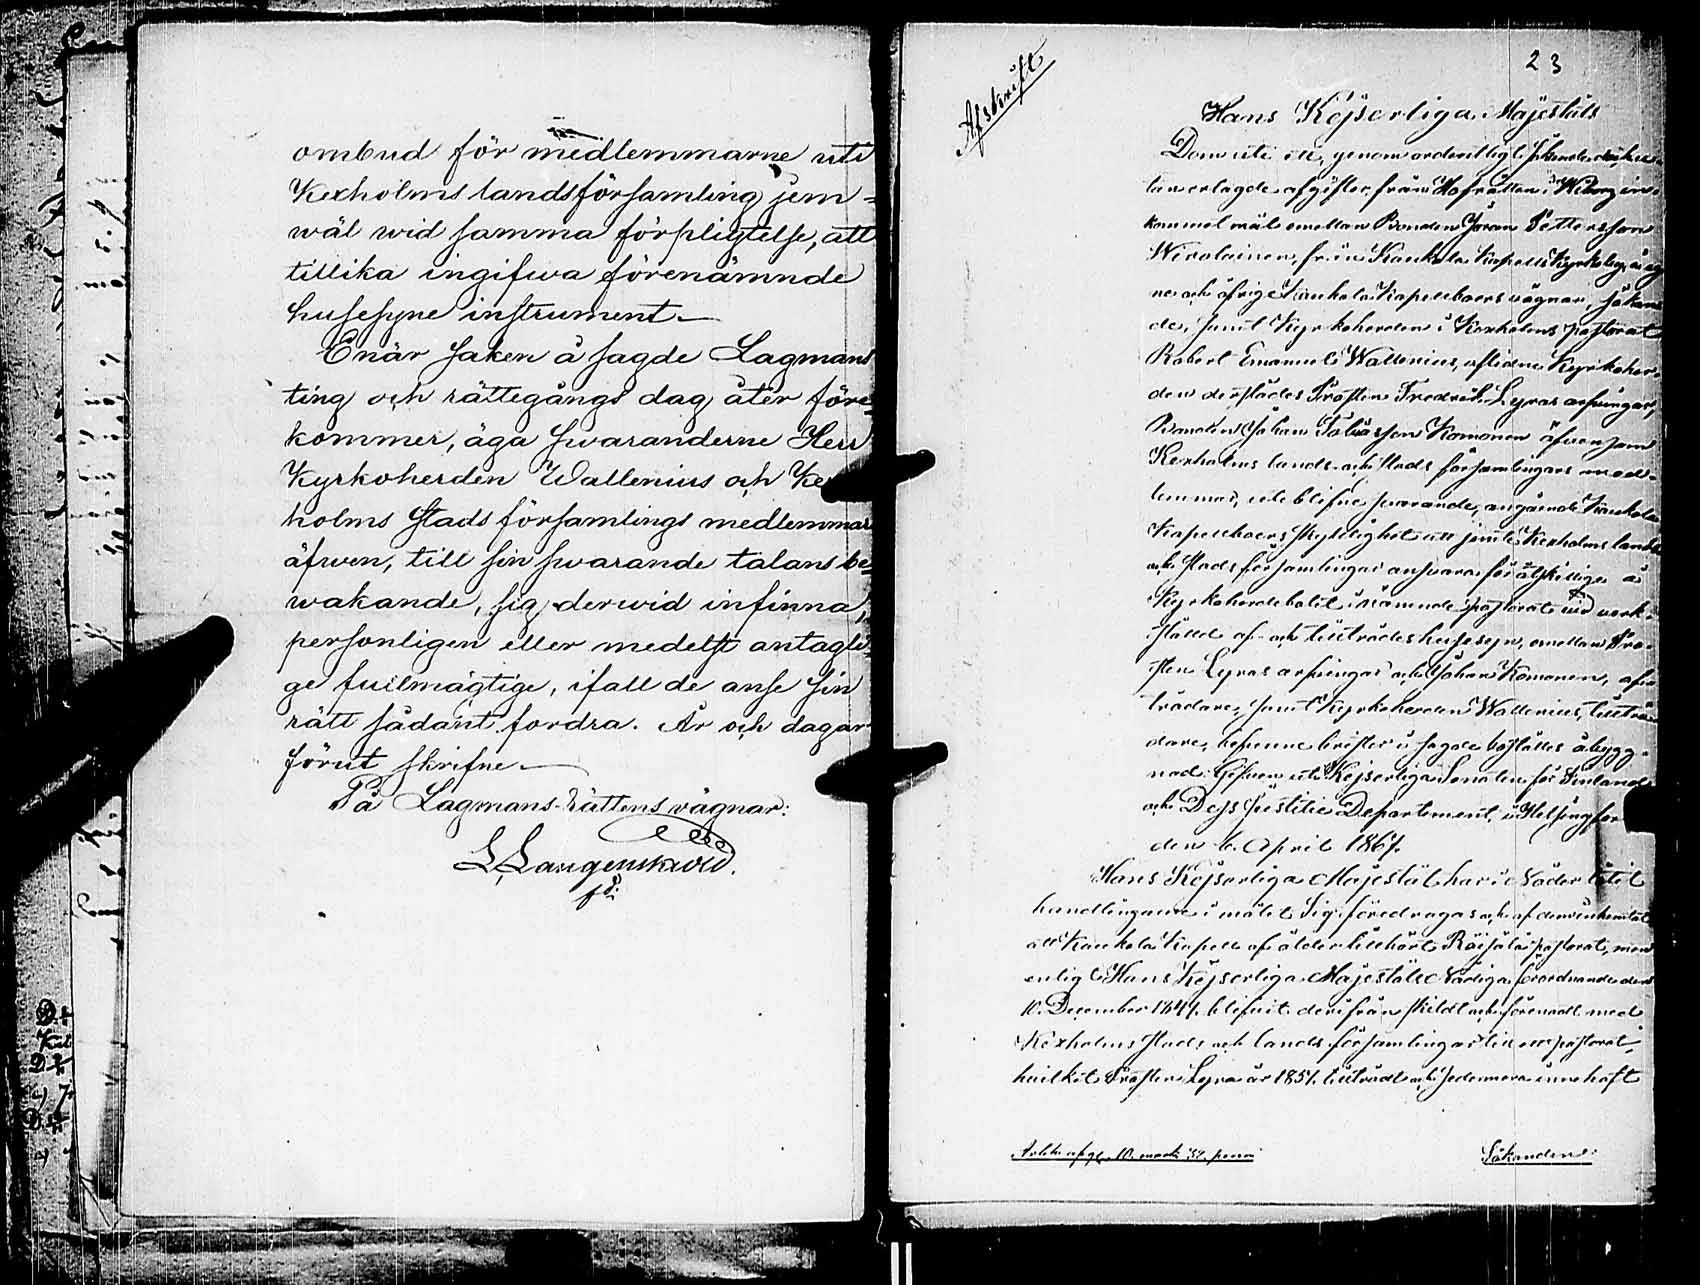 ombud för medlemmarne uti
Kexholms landsförsamling jem=
wäl wid samma förpligtelse, att
tillika ingifwa förenämnde
husesyne instrument.—
Enär saken å sagde Lagmans
ting och rättegångs dag åter före=
kommer, äga swaranderne Herr
Kyrkoherden Wallenius och Kex
holms stads församlings medlemmar
äfwen, till sin swarande talans be=
wakande, sig derwid infinna,
personligen eller medelst antagli=
ge fullmägtige, ifall de anse sin
rätt sådant fordra. År och dagar
förut skrifne.—
På Lagmans-Rättens wägnar:
L. Langenskiöld.
Afskrift
23
Hans Kejserliga Majestäts
Dom uti ett, genom ordentligt
erlagde afgifter, från Hofrätten i Wiborg in=
kommet mål emellan Bonden Göran Pettersson
Wirolainen, från Kaukola Kapells Kyrkoby, å eg
ne och öfrige Kaukola Kapellboers wägnar, sökan
de, samt Kyrkoherden i Kexholms pastorat
Robert Emanuel Wallenius, aflidne Kyrkoher=
den derstädes Prosten Fredrik Lyras arfwingar,
Bonden Johan Tobiasson Komonen äfwensom
Kexholms lands- och stads församlingars med=
lemmar, uteblifne swarande, angående Kaukola
Kapellboers skyldighet att jemte Kexholms lands
och stads församlingar answara för åtskillige å
Kyrkoherdebolet i nämnde pastorat wid werk=
ställd af- och tillträdes husesyn, emellan Pro=
sten Lyras arfwingar och Johan Komonen, af=
trädare, samt Kyrkoherden Wallenius, tillträ
dare, befunne brister å sagde boställes åbygg=
nad. Gifwen uti Kejserliga Senaten för Finland
och Dess Justitie Departement, i Helsingfors
den 6. April 1867.
Hans Kejserliga Majestät har i Nåder låtit
handlingarne i målet Sig föredragas och af dem inhemtat
att Kaukola Kapell af ålder tillhört Räisälä pastorat, men
enligt Hans Kejserliga Majestäts Nådiga förordnande den
10. December 1841. blifwit derifrån skildt och förenadt med
Kexholms stads och lands församlingar till ett pastorat,
hwilket Prosten Lyra år 1851. tillträdt och sedermera innehaft
10. mark 32. penni
Sökanden: